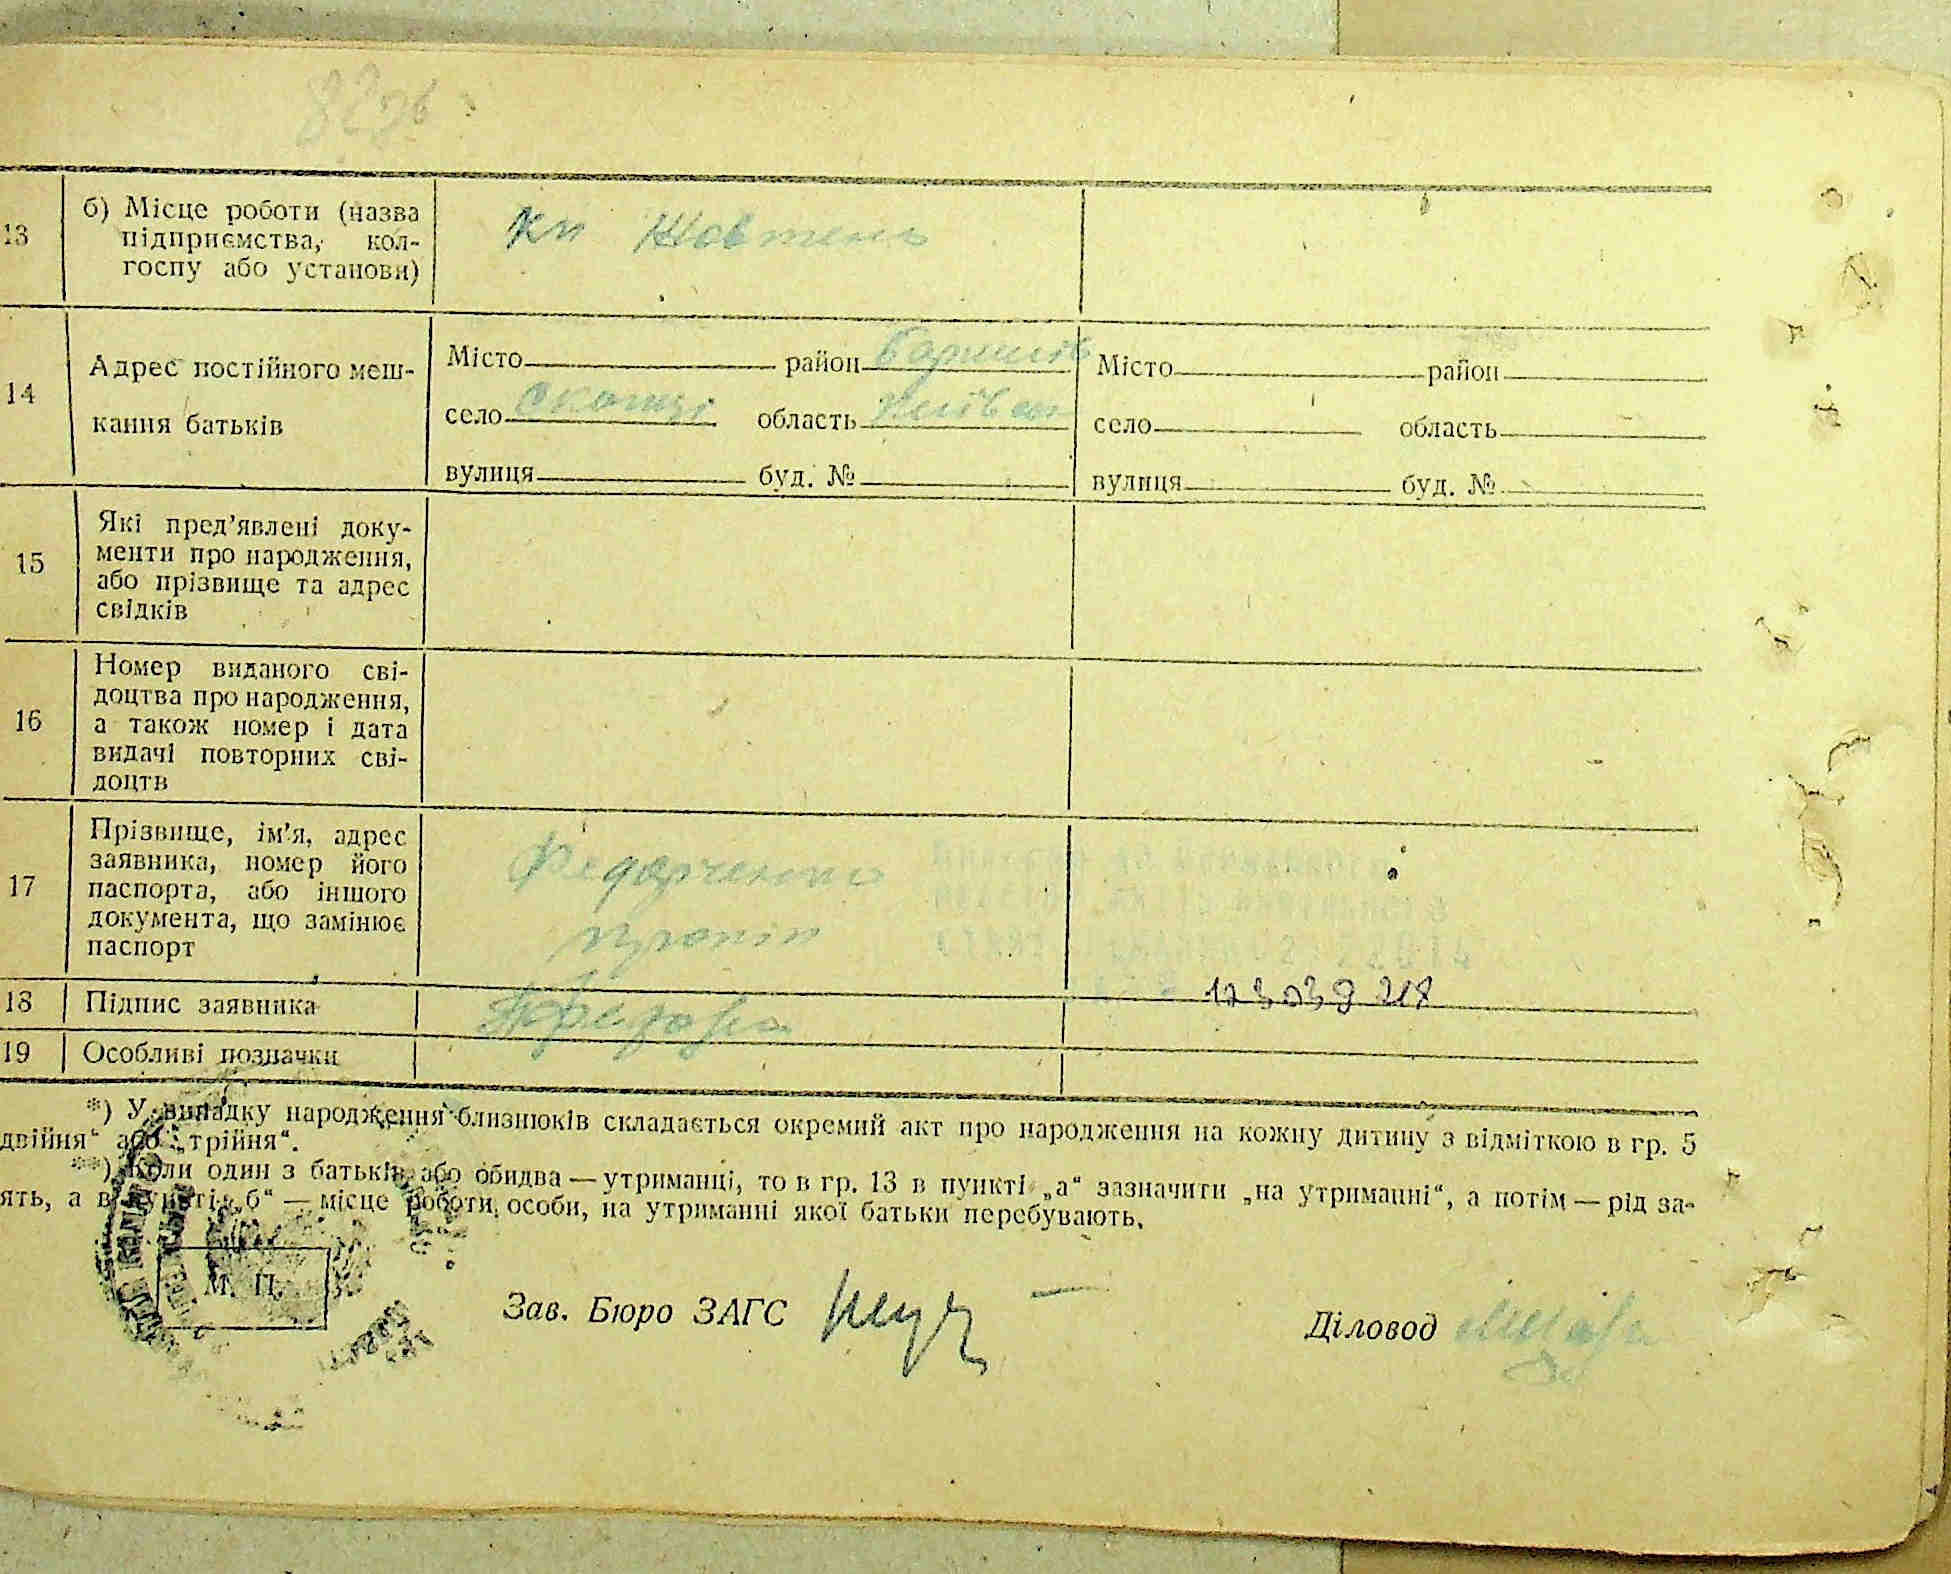 82зв
13
б) Місце роботи (назва
підприємства, кол-
госпу або установи)
Кп Жовтень
14
Адрес постійного меш-
кання батьків
Місто район Баришів
село Скопці область Київськ
вулиця буд. №
Місто район
село область
вулиця буд. №
15
Які пред’явлені доку-
менти про народження,
або прізвище та адрес
свідків
16
Номер виданого сві-
доцтва про народження,
а також номер і дата
видачі повторних сві-
доцтв
17
Прізвище, ім’я, адрес
заявника, номер його
паспорта, або іншого
документа, що замінює
паспорт
Федорченко
Прокіп
18
Підпис заявника
19
Особливі позначки
*) У випадку народження близнюків складається окремий акт про народження на кожну дитину з відміткою в гр. 5
двійня“ або „трійня“.
**) Коли один з батьків або обидва — утриманці, то в гр. 13 в пункті „а“ зазначити „на утриманні“, а потім — рід за-
ять, а в пункті „б“ — місце роботи особи, на утриманні якої батьки перебувають.
М. П.
Зав. Бюро ЗАГС
Діловод